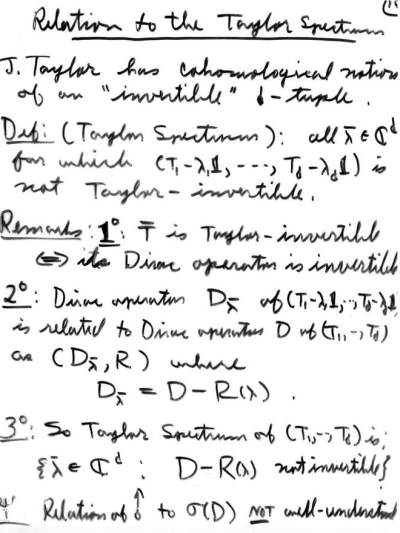 Relation to the Taylor Spectrum
J. Taylor has cohomological notion
of an "invertible" d-tuple.
Def: (Taylor Spectrum): all λ̄ ∈ ℂᵈ
for which (T₁-λ₁𝟙, ---, T_d-λ_d𝟙) is
not Taylor-invertible.
Remarks: 1°: T̄ is Taylor-invertible
⇔ its Dirac operator is invertible
2°: Dirac operator D_λ̄ of (T₁-λ₁𝟙,..,T_d-λ_d𝟙)
is related to Dirac operator D of (T₁,--,T_d)
as (D_λ̄, R) where
D_λ̄ = D - R(λ).
3°: So Taylor Spectrum of (T₁,--,T_d) is:
{λ̄ ∈ ℂᵈ : D-R(λ) not invertible}
4° Relation of ↑ to σ(D) NOT well-understood